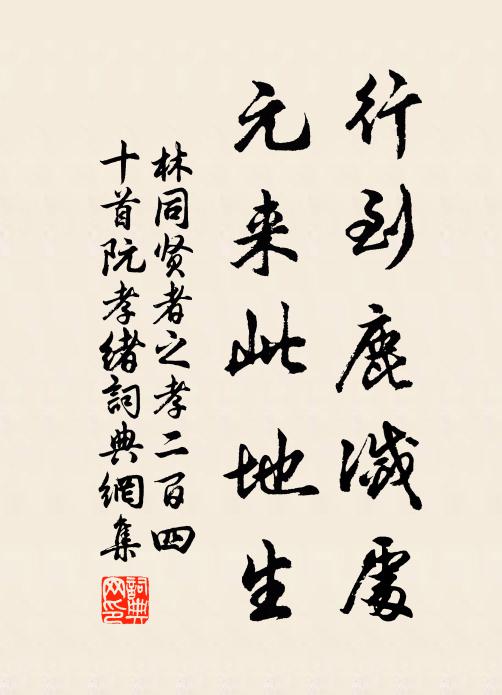 行到鹿滅處
元来此地生
林同賢者之孝二百四
十首阮孝緒詞典網集
詞典网印